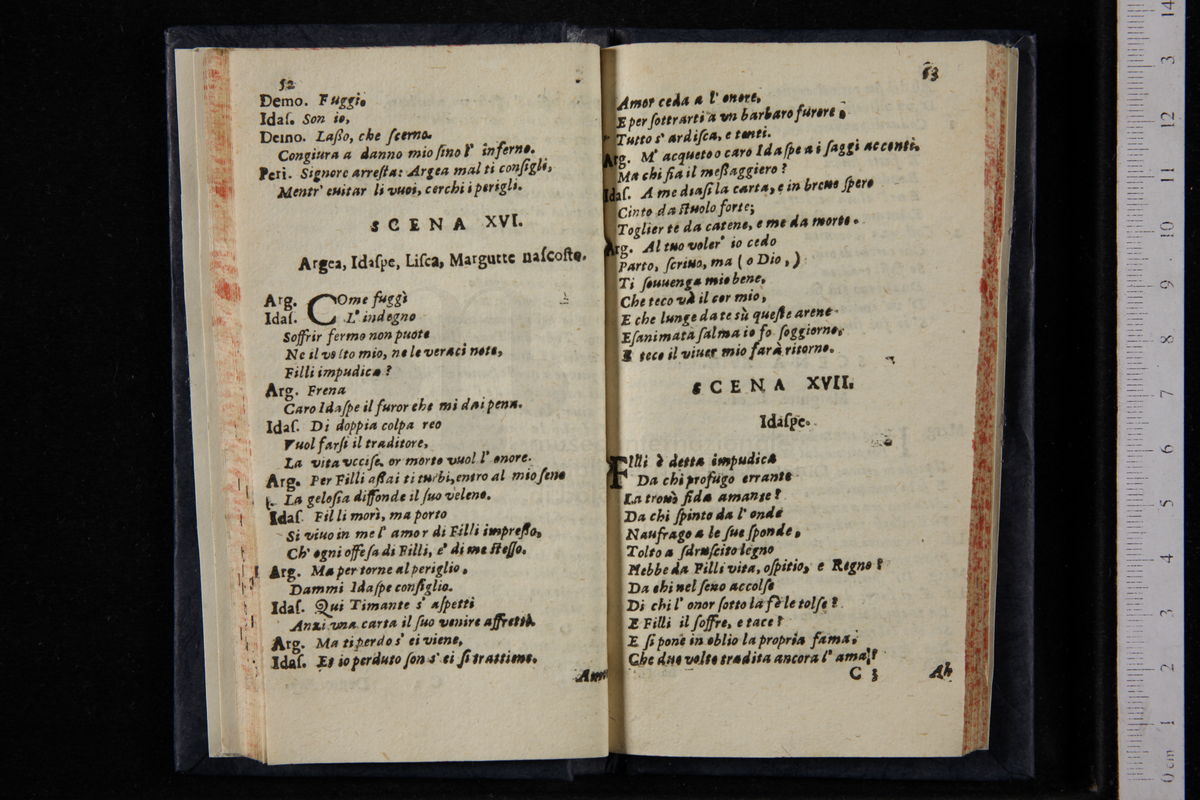 52
Demo. Fuggi.
Idaſ. Son io,
Demo. Laßo, che ſcerno.
Congiura a danno mio ſino l' inferno.
Peri. Signore arreſta: Argea mal ti conſigli,
Mentr' euitar li vuoi, cerchi i perigli.
SCENA XVI.
Argea, Idaſpe, Liſca, Margutte naſcoſto.
Arg. COme fuggì
Idaſ. L' indegno
Soffrir fermo non puote
Ne il volto mio, ne le veraci note,
Filli impudica?
Arg. Frena
Caro Idaſpe il furor che mi dai pena.
Idaſ. Di doppia colpa reo
Vuol farſi il traditore,
La vita vcciſe, or morto vuol l' onore.
Arg. Per Filli aſſai ti turbi, entro al mio ſeno
La geloſia diffonde il ſuo veleno.
Idaſ. Filli morì, ma porto
Si viuo in me l' amor di Filli impreſſo,
Ch' ogni offeſa di Filli, e' di me ſteſſo.
Arg. Ma per torne al periglio,
Dammi Idaſpe conſiglio.
Idaſ. Qui Timante s' aſpetti
Anzi vna carta il ſuo venire affretti.
Arg. Ma ti perdo s' ei viene,
Idaſ. Et io perduto ſon s' ei ſi trattiene.
53
Amor ceda a l' onore,
E per ſottrarti a vn barbaro furore,
Tutto s' ardiſca, e tenti.
Arg. M' acqueto o caro Idaſpe a i ſaggi accenti.
Ma chi fia il meßaggiero?
Idaſ. A me diaſi la carta, e in breue ſpero
Cinto da ſtuolo forte;
Toglier te da catene, e me da morte.
Arg. Al tuo voler' io cedo
Parto, ſcriuo, ma (o Dio,)
Ti ſouuenga mio bene,
Che teco và il cor mio,
E che lunge da te sù queſte arene
Eſanimata ſalma io fo ſoggiorno,
E teco il viuer mio farà ritorno.
SCENA XVII.
Idaſpe.
FIlli è detta impudica
Da chi profugo errante
La trouò fida amante?
Da chi ſpinto da l' onde
Naufrago a le ſue ſponde,
Tolto a ſdruſcito legno
Hebbe da Filli vita, oſpitio, e Regno?
Da chi nel ſeno accolſe
Di chi l' onor ſotto la fè le tolſe?
E Filli il ſoffre, e tace?
E ſi pone in oblio la propria fama,
Che due volte tradita ancora l' ama?
C 3 Ah